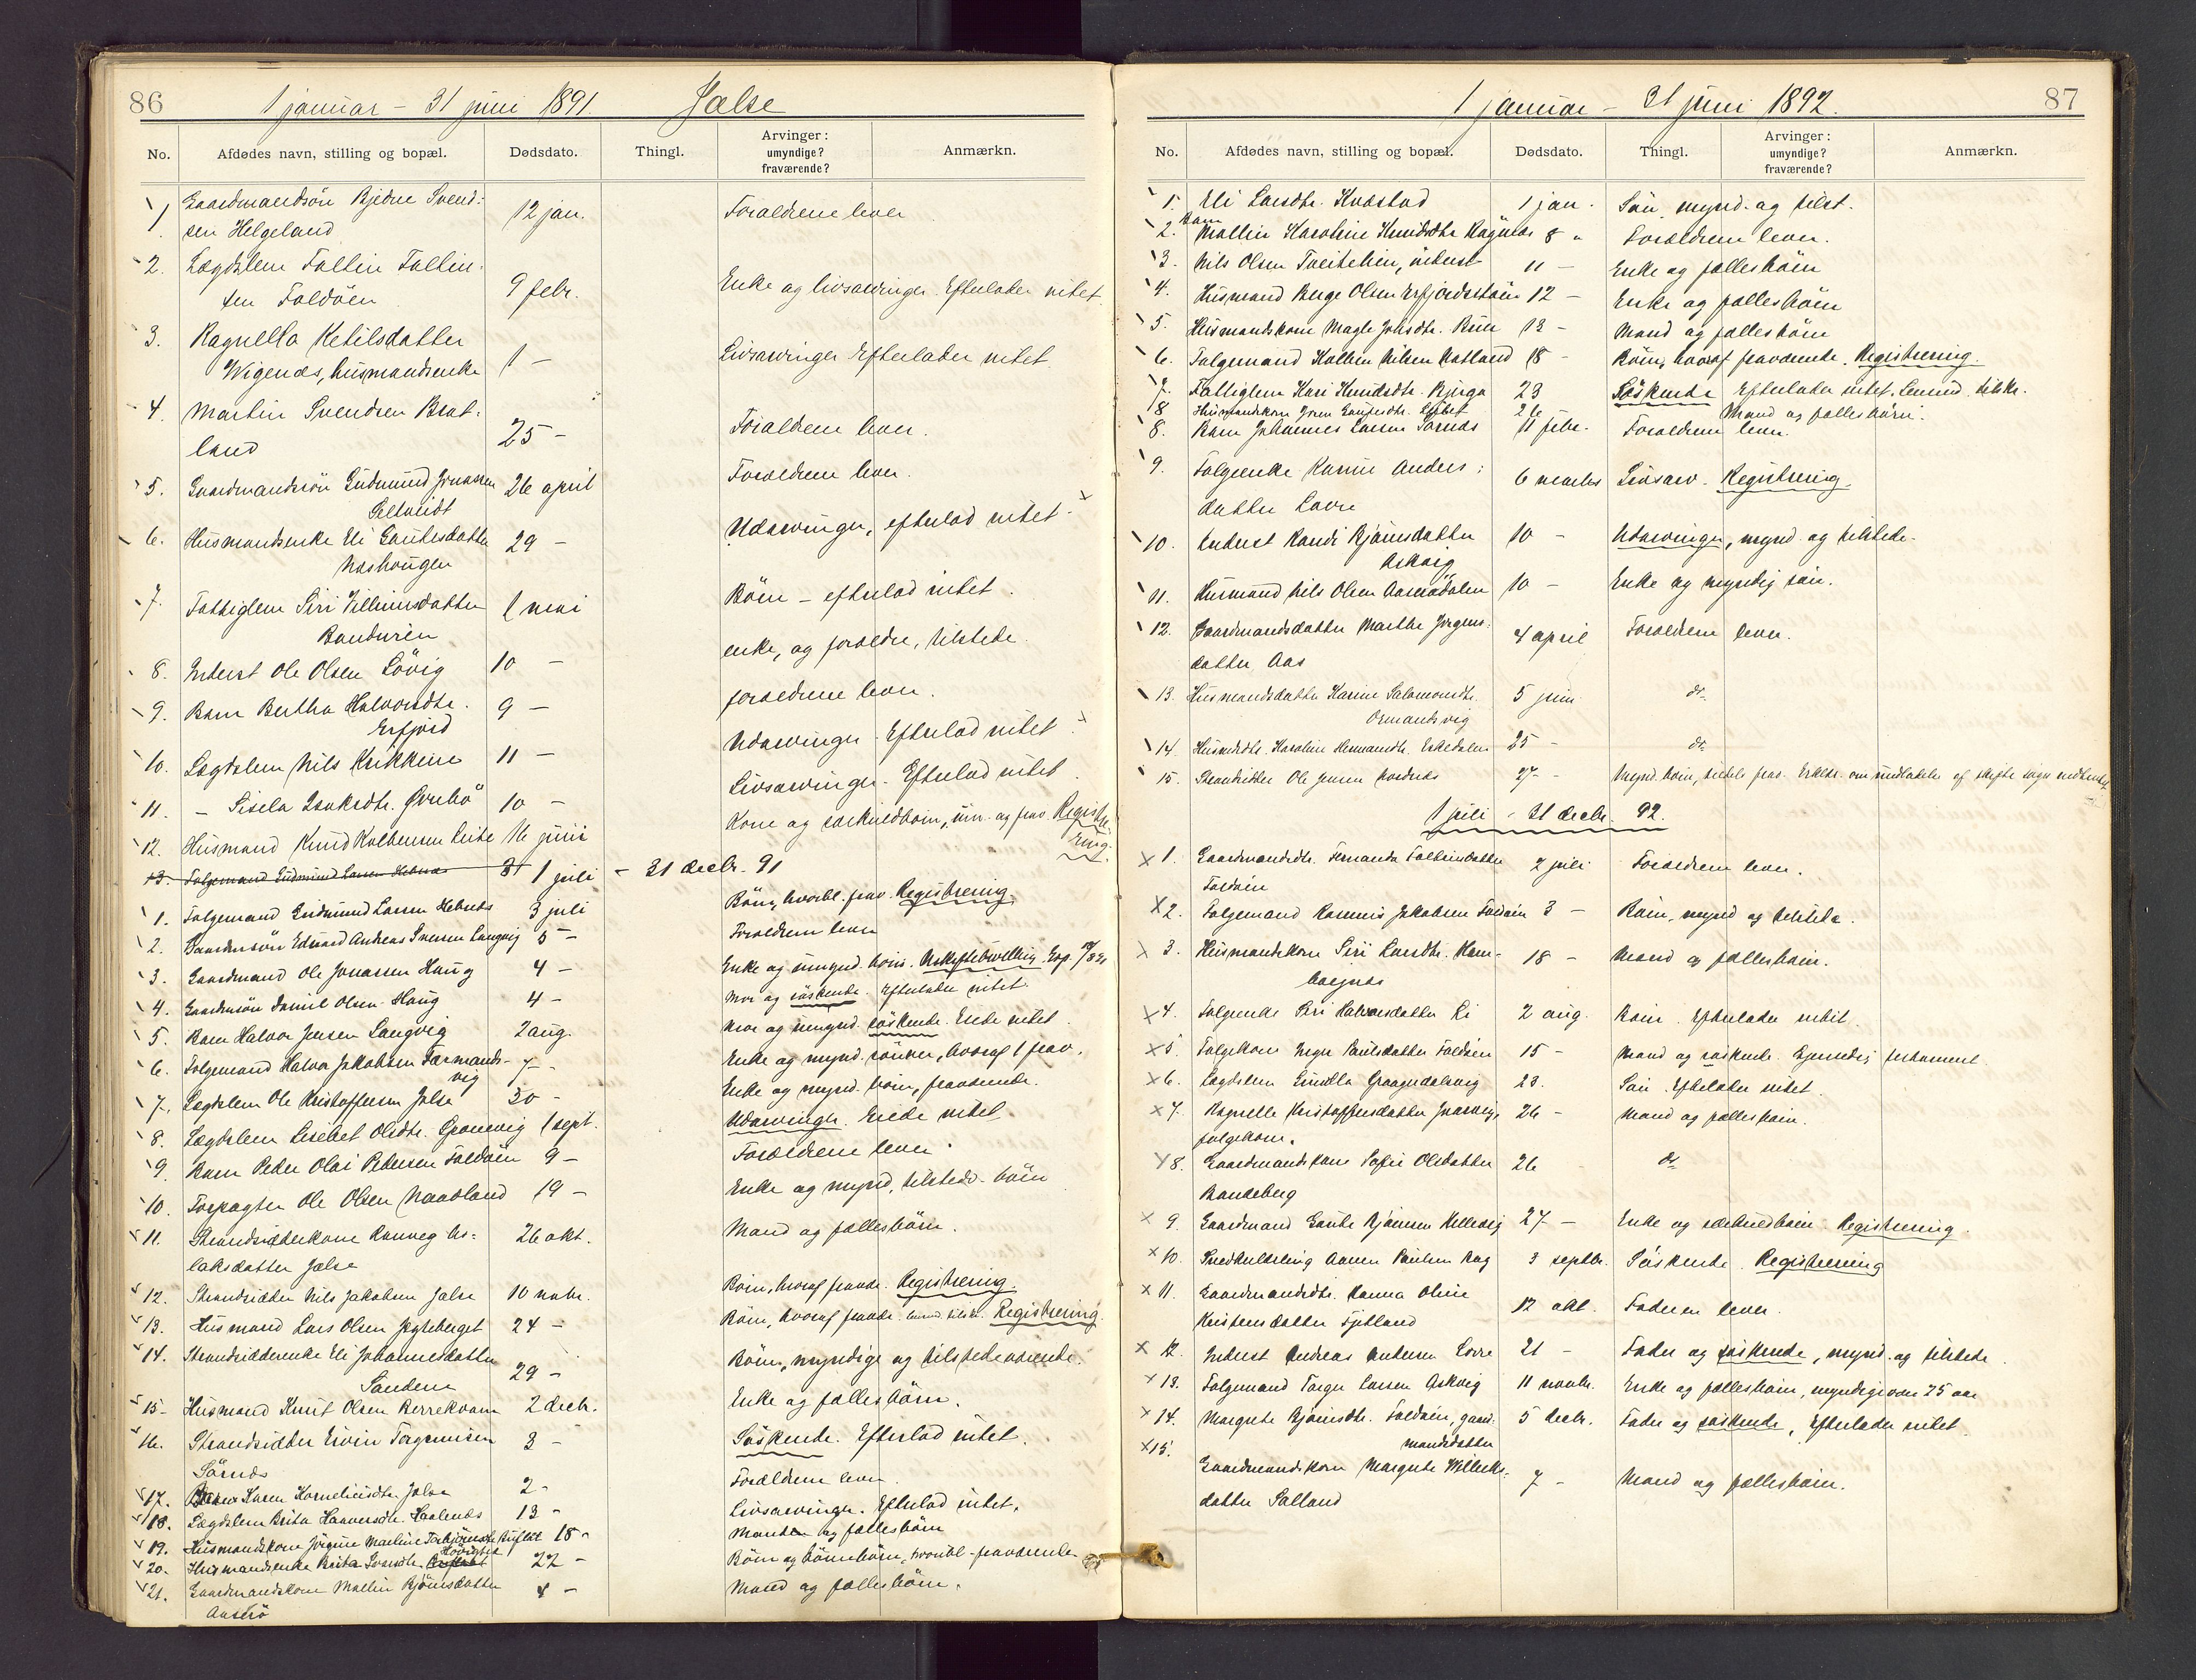 86
1 januar – 31 juni 1891. Jælse
No. Afdødes navn, stilling og bopæl. Dødsdato. Thingl. Arvinger: umyndige? fraværende? Anmærkn.
1. Gaardmandsön Bjedne Svend-
sen Helgeland 12 jan. Forældrene lever
2. Lægdslem Tollin Tollin-
sen Foldöen 9 febr. Enke og livsarvinger. Efterlader intet
3. Ragnella Ketilsdatter
Wigenæs, husmandsenke 1 – Livsarvinger Efterlader intet
4. Martin Svendsen Brat-
land 25 – Forældrene lever.
5. Gaardmandsön Gudmund Jonassen 26 april Forældrene lever.
6. Husmandsenke Eli Gautesdatter 29 – Udarvinger, efterlod intet
Nashougen
7. Fattiglem Siri Villumsdatter 1 mai Börn – efterlod intet.
8. Inderst Ole Olsen Lövig 10 – enke, og forældre, tilstede.
9. Barn Bertha Halvorsdtr. 9 – forældrene lever.
Erfjord
10. Lægdslem Nils Krikkene 11 – Udarvinger. Efterlod intet
11. – Sisela Isaksdtr. Øvrebö 10 – Livsarvinger. Efterlod intet.
12. Husmand Knud Kolbensen 16 juni Kone og særkuldbörn, um. og frav. Registre-
ring.
13. Folgemand Gudmund Larsen Hebnes 31 1 juli – 31 decbr. 91
1. Folgemand Gudmund Larsen Hebnes 3 juli Börn, hvorbl. frav. Registrering.
2. Gaardmsön Edvard Andreas Iversen Langvig 5 – Forældrene lever
3. Gaardmand Ole Jonassen Haug 4 – Enke og umynd. börn. Uskiftebevilling
4. Gaardmsön Daniel Olsen Haug 4 – Mor og söskende. Efterlader intet.
5. Barn Halvor Jensen Langvig 2 aug. Mor og umynd. söskende. Eiede intet.
6. Folgemand Halvor Jakobsen Tormands-
vig 7 – Enke og mynd. sönner, hvoraf 1 frav.
7. Lægdslem Ole Kristoffersen Jelse 30 – Enke og mynd. börn, fraværende.
8. Lægdslem Lisebet Olsdtr. 1 sept. Udarvinger. Eiede intet.
9. Barn Peder Olai Pedersen Foldöen 9 – Forældrene lever
10. Forpagter Ole Olsen Naadland 19 – Enke og mynd, tilstedv. börn
11. Strandsidderkone Ranveg As-
laksdatter Jelse 26 okt. Mand og fællesbörn.
12. Strandsidder Nils Jakobsen Jelse 10 novbr. Börn, hvoraf fravær. Registrering.
13. Husmand Lars Olsen 24 – Börn, hvoraf fravær. Registrering.
14. Strandsidderenke Eli Johannesdatter
Sandene 29 – Börn, myndige og tilstedeværende.
15. Husmand Knut Olsen 2 decbr. Enke og fællesbörn.
16. Strandsidder Eivin Torgersen 3 – Söskende. Efterlod intet.
Sörnæs
17. Karen Korneliusdtr. Jelse 2 – Forældrene lever
18. Lægdslem Brita 13 – Livsarvinger. Efterlod intet.
19. Husmandskone Jörgine Martine 18 – Mand og fællesbörn
20. Husmandsenke Brita 22 – Börn og börnebörn, hvoribl. fraværende
21. Gaardmandskone Mallin Bjömsdatter 4 – Mand og fællesbörn.
87
1 januar – 31 juni 1892.
No. Afdødes navn, stilling og bopæl. Dødsdato. Thingl. Arvinger: umyndige? fraværende? Anmærkn.
1. Eli Larsdtr. Kvæstad 1 jan. Sön, mynd. og tilst.
2. Barn Mallin Karoline Knudsdtr. 8 " Forældrene lever.
3. Nils Olsen Tveitelien, inderst 11 – Enke og fællesbörn
4. Husmand Berge Olsen 12 – Enke og fællesbörn
5. Husmandskone Magle 13 – Mand og fællesbörn
6. Folgemand Kolbein Nilsen Natland 18 – Börn, hvoraf fraværende. Registrering.
7. Fattiglem Kari Knudsdtr. 23 Söskende Efterlader intet.
8 Husmandskone 26 Mand og fællesbörn.
8. Barn Johannes Larsen Sörnæs 11 febr. Forældrene lever.
9. Folgeenke Karine Anders-
datter Lovre 6 marts Livsarv. Registrering.
10. Inderst Randi Bjömsdatter
Askvig 10 – Udarvinger, mynd. og tilstede.
11. Husmand Nils Olsen 10 – Enke og myndig sön.
12. Gaardmandsdatter Marthe Jörgens-
datter Aas 4 april Forældrene lever.
13. Husmandsdatter Karine Salamonsdtr.
Ormandsvig 5 juni do.
14. Husmdtr. Karoline 25 – do.
15. Strandsidder Ole 27 – Mynd. börn, tildels frav.
1 juli – 31 decbr. 92.
1. Gaardmandsdtr. Fernanda Tollinsdatter
Foldöen 2 juli Forældrene lever.
2. Folgemand Rasmus Jakobsen Foldöen 3 – Börn, mynd og tilstede.
3. Husmandskone Siri Larsdtr. 18 – Mand og fællesbörn.
4. Folgeenke Siri Halvorsdatter Li 2 aug. Börn. Efterlader intet.
5. Folgekone Inger Paulsdatter Foldöen 15 – Mand og söskende. Gjensidig testament.
6. Lægdslem 23. Sön. Efterlader intet.
7. Ragnella Kristoffersdatter 26 – Mand og fællesbörn.
folgekone.
8. Gaardmandskone Sofie Olsdatter 26 do.
Bandeberg
9. Gaardmand Gaute Bjömsen Hellevig 27 – Enke og særkuldbörn. Registrering.
10. Aanen Paulsen 3 septbr. Söskende. Registrering
11. Gaardmandsdtr. Hanna Oline
Kristensdatter 12 okt. Faderen lever.
12. Inderst Andreas Andersen Lovre 21 – Fader og söskende, mynd. og tilstede.
13. Folgemand Torger Larsen Askvig 11 novbr. Enke og fællesbörn, myndige over 25 aar
14. Margrete Bjömsdtr. Foldöen, gaard-
mandsdatter 5 decbr. Fader og söskende, Efterlader intet.
15. Gaardmandskone Margrete
datter Salland 7 – Mand og fællesbörn.